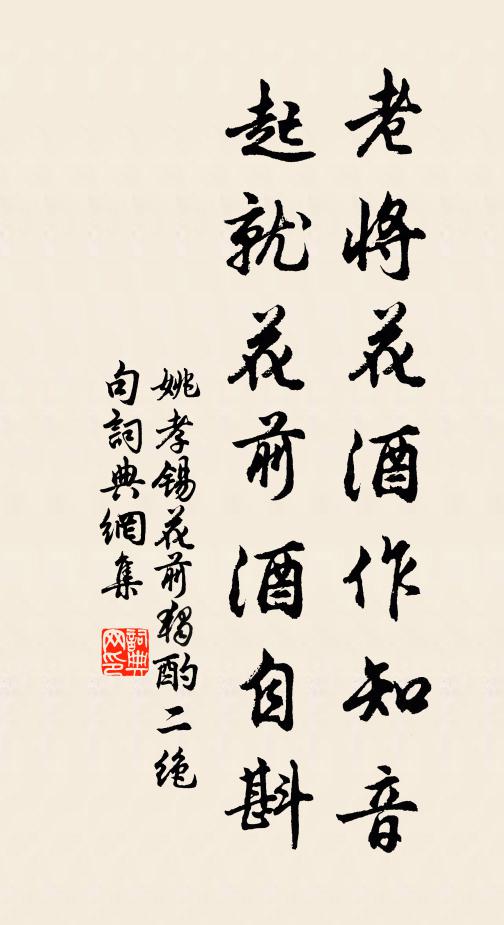 老將花酒作知音
起就花前酒自斟
姚孝錫花前獨酌二絶
句詞典網集
詞典
网印